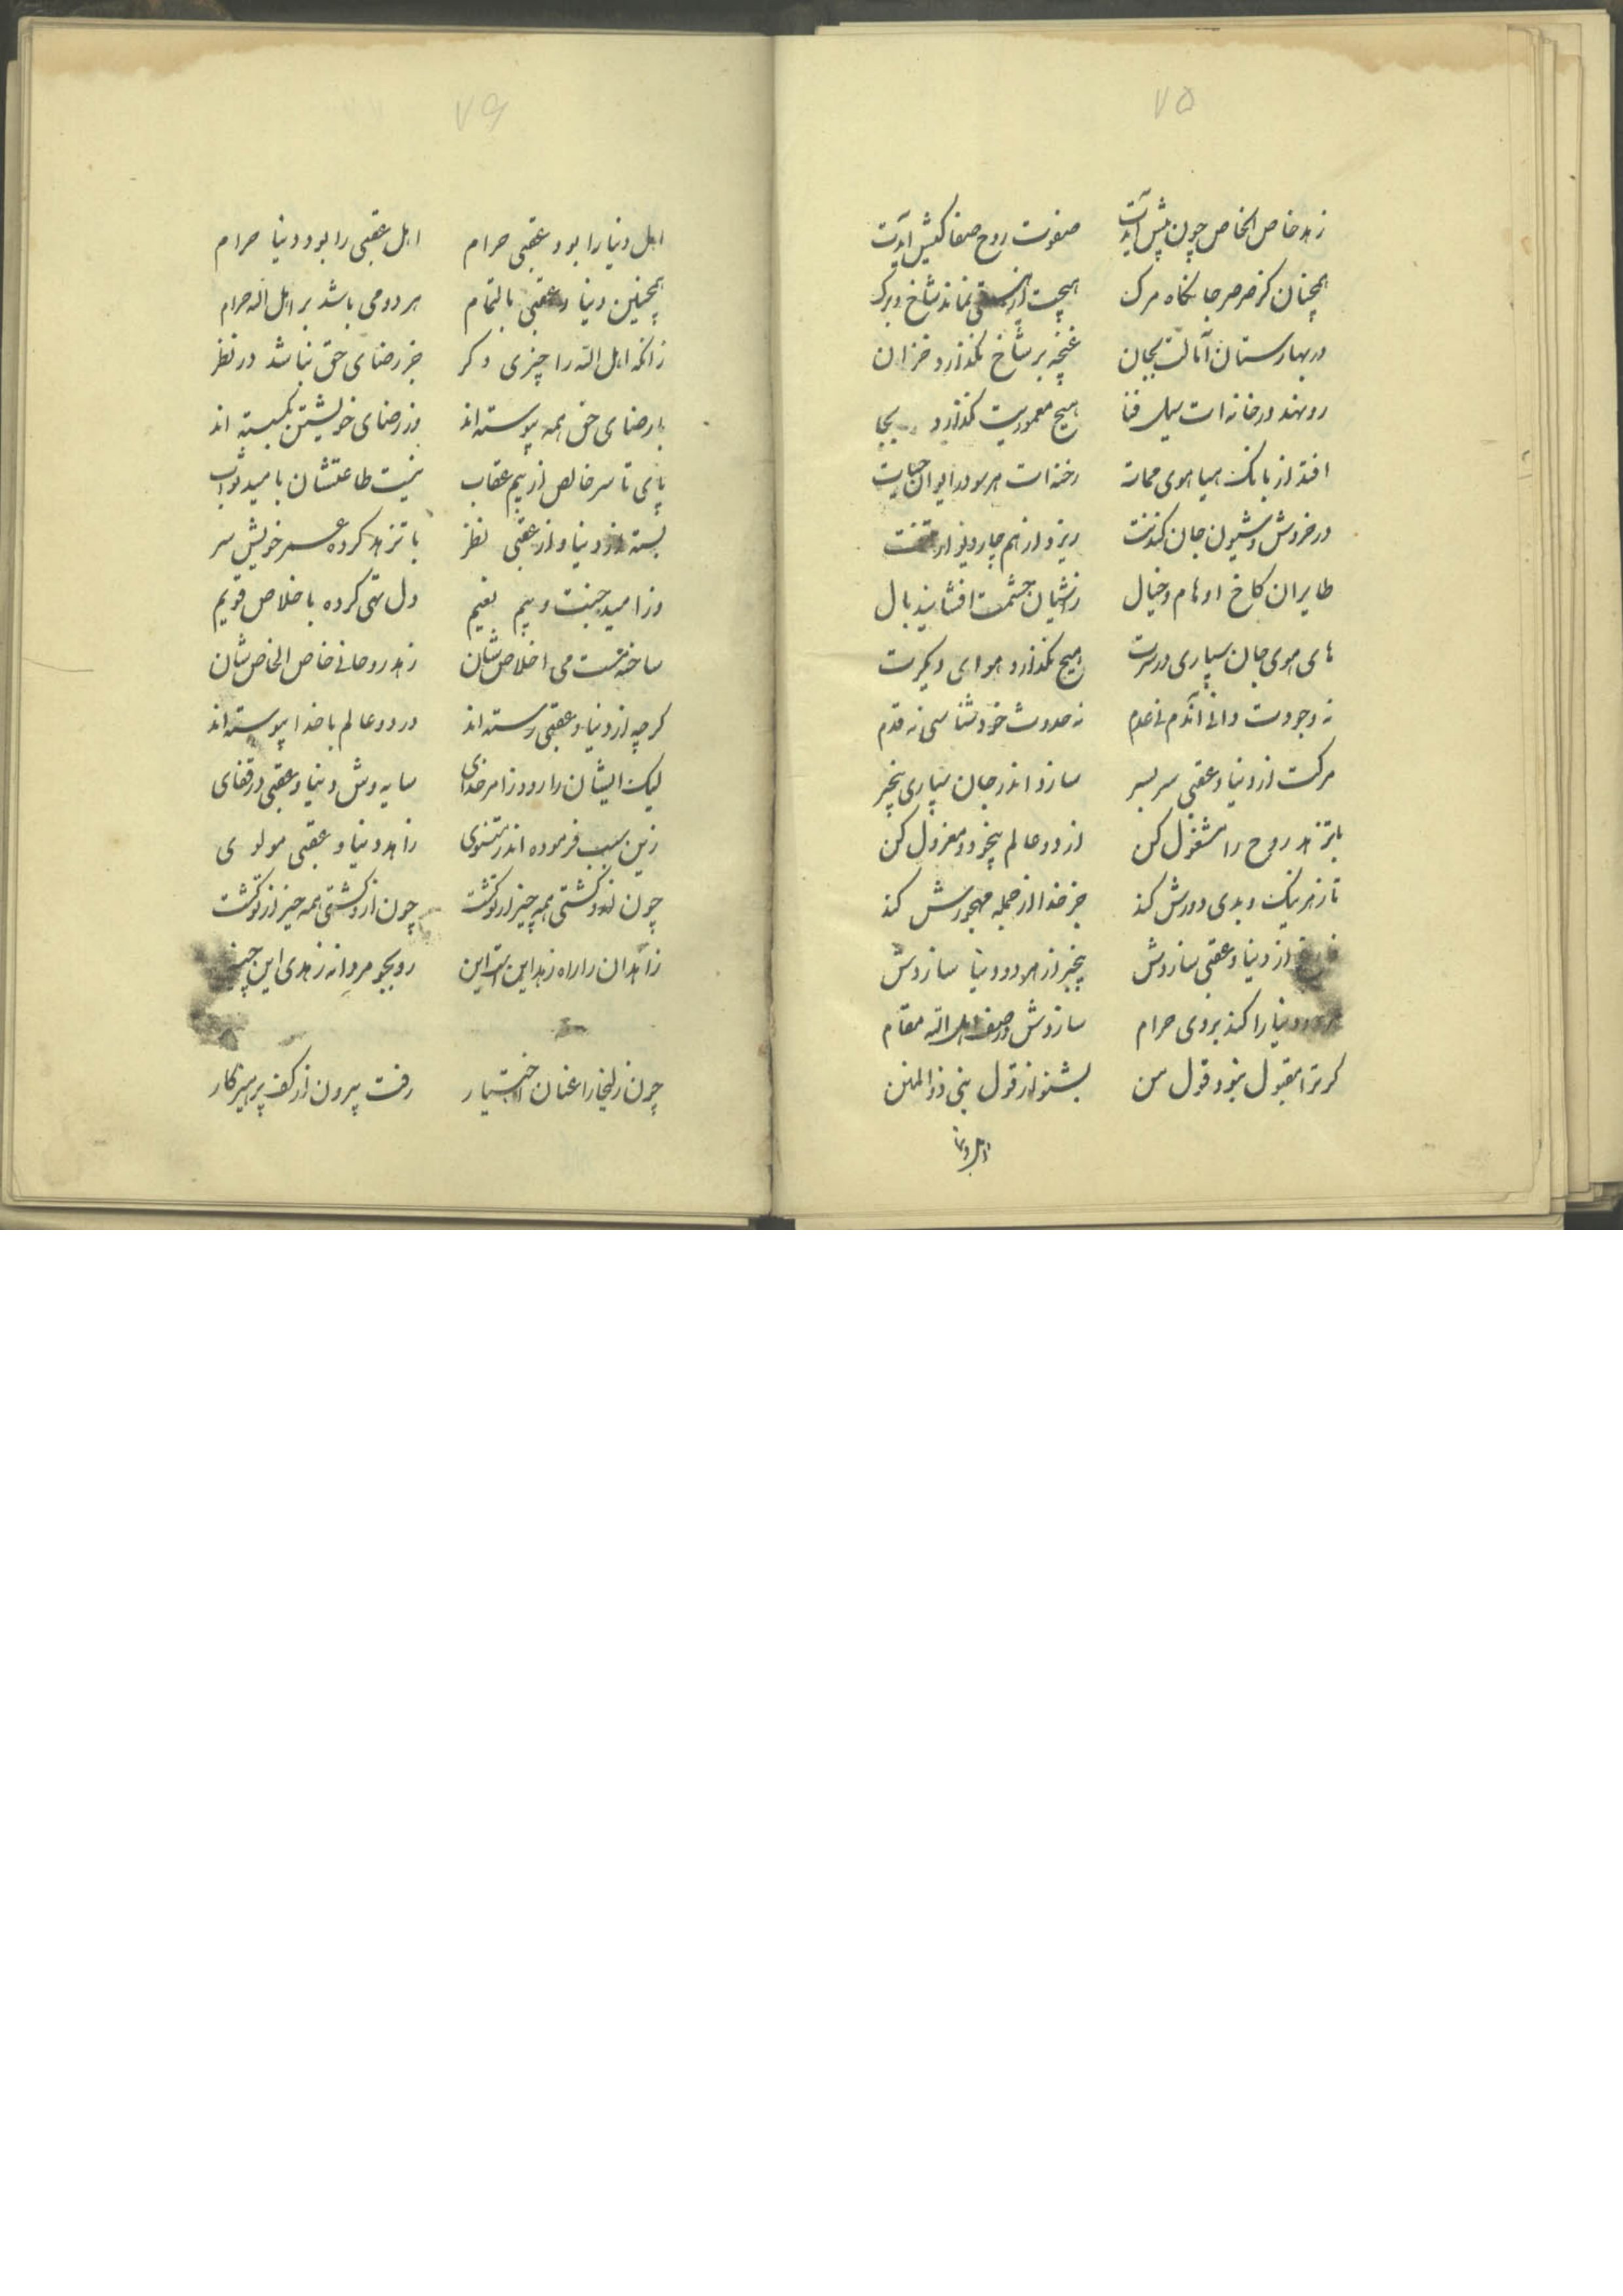 ۷۵
زهد خاص الخاص چون پیش آیدت صفوت روح صفا کیش آیدت
همچنان کز صرصر جانکاه مرک هیچت از هستی نماند شاخ و برک
در بهارستان آمالت بجان غنچه بر شاخ نکذارد خزان
رو نهد در خانه ات سیل فنا هیچ معموریت نکذارد بجا
افتد از بانک هیا هوی ممات رخنه ات هر سو در ایوان حیات
در خروش و شیون جان کندنت ریزد از هم چار دیوار تنت
طایران کاخ اوهام و خیال زاشیان چشمت افشانند بال
های هوی جان سپاری در سرت هیچ نکذارد هوای دیکرت
نه وجودت دانی آندم نی عدم نه حدوث خود شناسی نه قدم
مرکت از دنیا و عقبی سر بسر سازد اندر جان سپاری بیخبر
با تزهد روح را مشغول کن از دو عالم بیخود و معزول کن
تا ز هر نیک و بدی دورش کند جز خدا از جمله مهجورش کند
فارغ از دنیا و عقبی سازدش بیخبر از هر دو دنیا سازدش
هر دو دنیا را کند بروی حرام سازدش در صف اهل الله مقام
کر ترا مقبول نبود قول من بشنو از قول نبی ذوالمنن
اهل دنیا
۷۶
اهل دنیا را بود عقبی حرام اهل عقبی را بود دنیا حرام
همچنین دنیا و عقبی بالتمام هر دو می باشد بر اهل الله حرام
زانکه اهل الله را چیزی دکر جز رضای حق نباشد در نظر
با رضای حق همه پیوسته اند وز رضای خویشتن بکسسته اند
پای تا سر خالص از بیم عقاب نیست طاعتشان بامید ثواب
بسته از دنیا و از عقبی نظر با تزهد کرده عمر خویش سر
وز امید جنت و بیم نعیم دل تهی کرده باخلاص قویم
ساخته مست می اخلاص شان زهد روحانی خاص الخاص شان
کرچه از دنیا و عقبی رسته اند در دو عالم با خدا پیوسته اند
لیک ایشان را رود ز امر خدای سایه وش دنیا و عقبی در قفای
زین سبب فرموده اندر مثنوی زاهد دنیا و عقبی مولوی
چون ازو کشتی همه چیز از تو کشت چون ازو کشتی همه چیز از تو کشت
زاهدان را راه زهد این است این رو بجو مردانه زهدی این چنین
چون زلیخا را عنان اختیار رفت بیرون از کف پرهیزکار